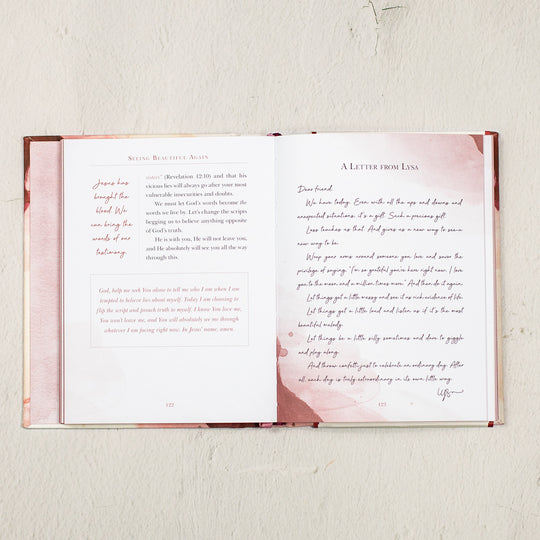 Seeing Beautiful Again
Jesus has
brought the
blood. We
can bring the
words of our
testimony.
sisters" (Revelation 12:10) and that his
vicious lies will always go after your most
vulnerable insecurities and doubts.
We must let God's words become the
words we live by. Let's change the scripts
begging us to believe anything opposite
of God's truth.
He is with you, He will not leave you,
and He absolutely will see you all the way
through this.
God, help me seek You alone to tell me who I am when I am
tempted to believe lies about myself. Today I am choosing to
flip the script and preach truth to myself. I know You love me,
You won't leave me, and You will absolutely see me through
whatever I am facing right now. In Jesus' name, amen.
122
A Letter from Lysa
Dear friend,
We have today. Even with all the ups and downs and
unexpected situations, it's a gift. Such a precious gift.
Loss teaches us that. And gives us a new way to see—a
new way to be.
Wrap your arms around someone you love and savor the
privilege of saying, "I'm so grateful you're here right now. I love
you to the moon and a million times more." And then do it again.
Let things get a little messy and see it as rich evidence of life.
Let things get a little loud and listen as if it's the most
beautiful melody.
Let things be a little silly sometimes and dare to giggle
and play along.
And throw confetti just to celebrate an ordinary day. After
all, each day is truly extraordinary in its own little way.
Lysa
123